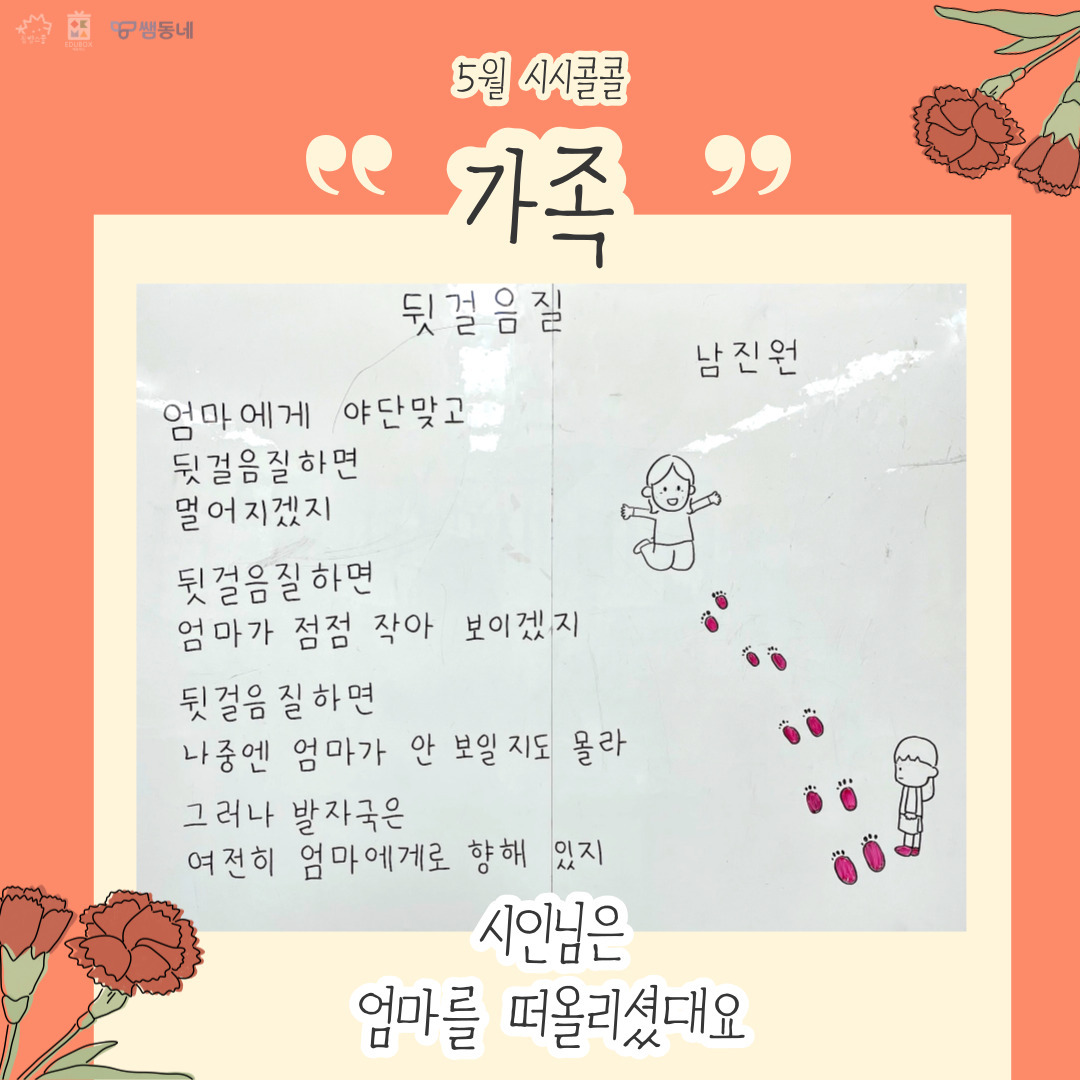 EDUBOX
쌤동네
5월 시시콜콜
“ 가족 ”
뒷걸음질
남진원
엄마에게 야단맞고
뒷걸음질하면
멀어지겠지
뒷걸음질하면
엄마가 점점 작아 보이겠지
뒷걸음질하면
나중엔 엄마가 안 보일지도 몰라
그러나 발자국은
여전히 엄마에게로 향해 있지
시인님은
엄마를 떠올리셨대요